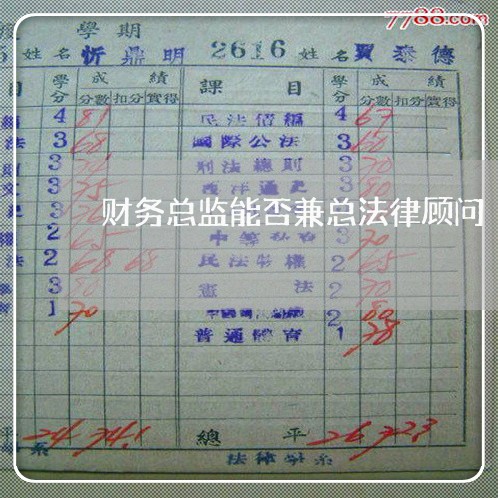 7788.com
學期
姓名 忻鼎明 2616 姓名 賈泰德
目 學分 成績 課目 學分 成績
分數 扣分 實得 分數 扣分 實得
4 81 民法債編 4 67
法 3 68 國際公法 3 60
3 刑法總則 3 70
3 75 西洋通史 3 80
财务总监能否兼总法律顾问
2 65 3 70
法 2 68 68 民法物權 2 65
3 80 憲法 2 70
1 70 2 80
普通體育 1 78
平 24 74.1 總平 26 72.3
系 法律學系